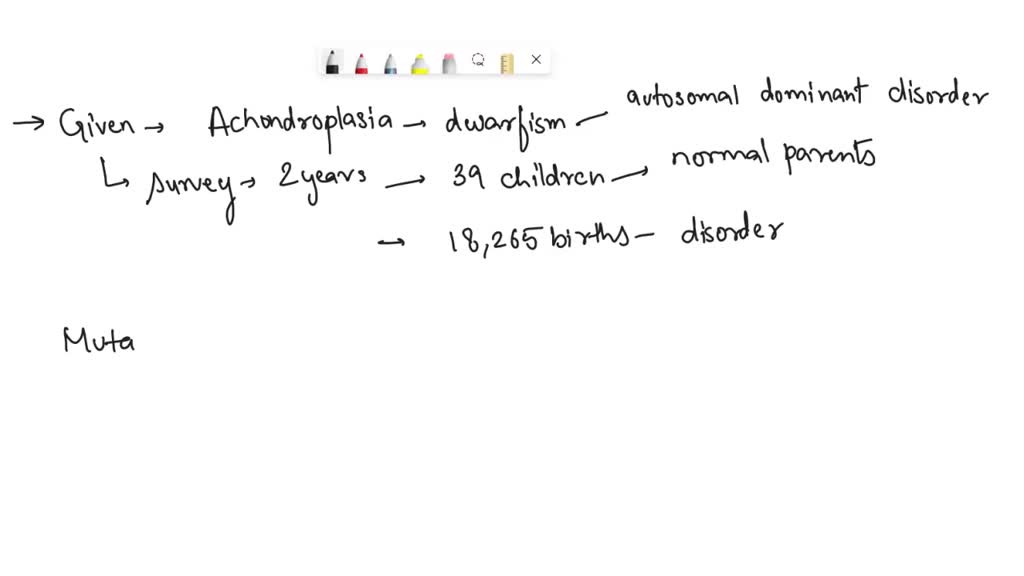 → Given → Achondroplasia → dwarfism — autosomal dominant disorder
↳ survey → 2 years → 39 children → normal parents
→ 18,265 births — disorder
Muta